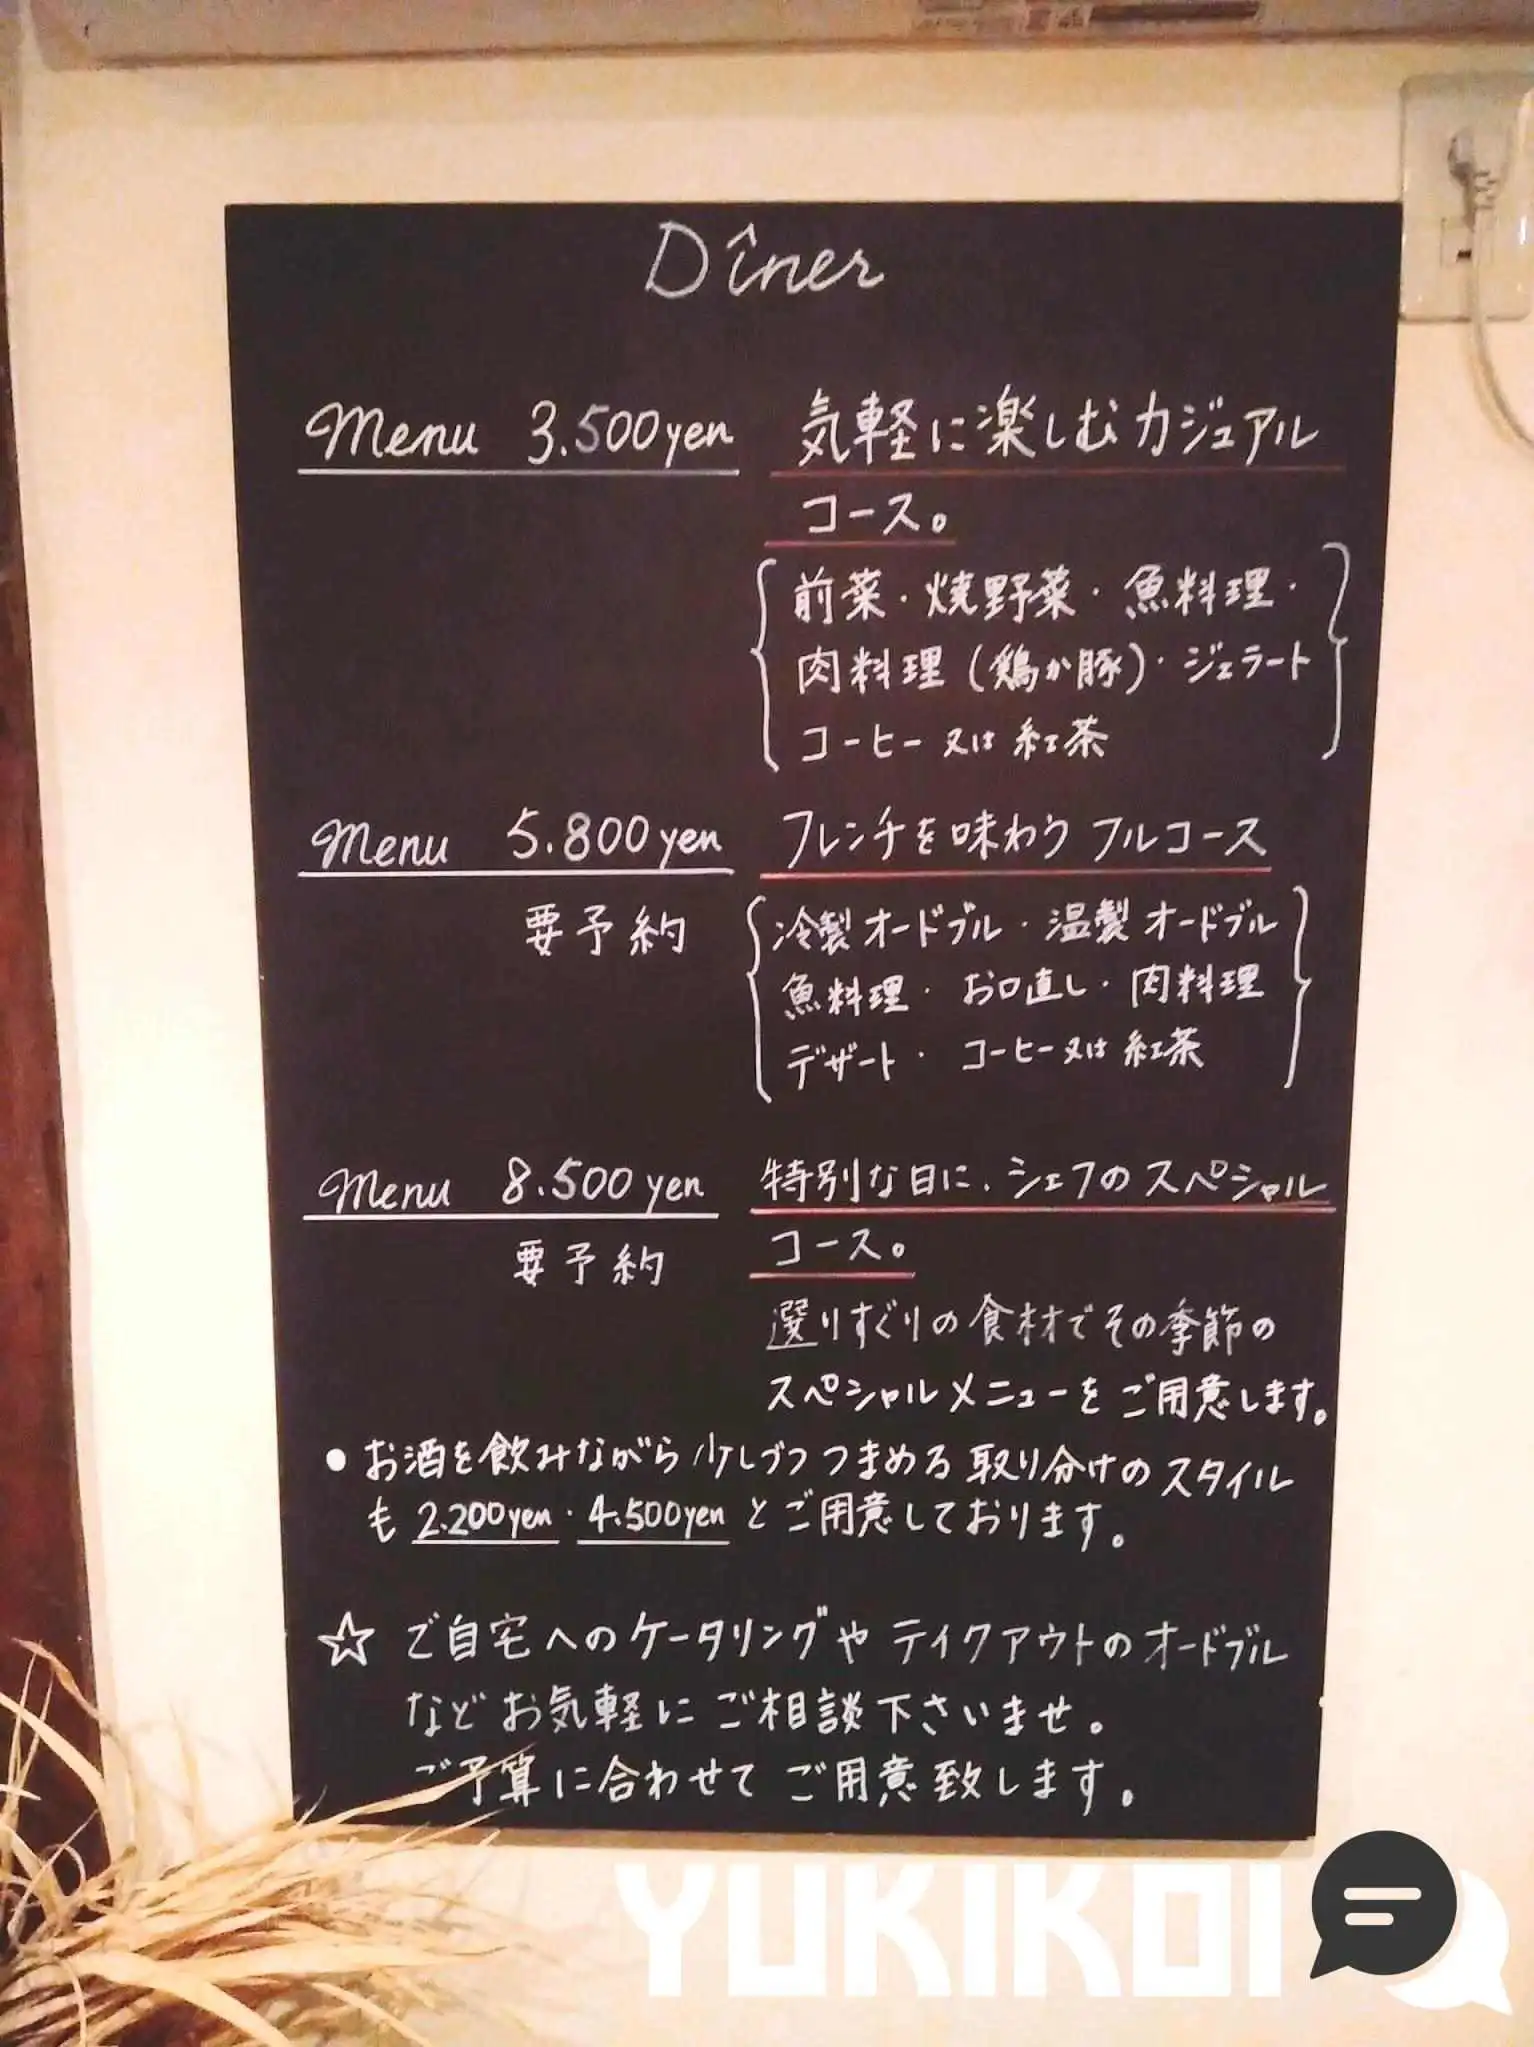 Dîner
Menu 3.500yen 気軽に楽しむカジュアル
コース。
前菜・焼野菜・魚料理・
肉料理(鶏か豚)・ジェラート
コーヒー又は紅茶
Menu 5.800yen フレンチを味わうフルコース
要予約 冷製オードブル・温製オードブル
魚料理・お口直し・肉料理
デザート・コーヒー又は紅茶
Menu 8.500yen 特別な日に、シェフのスペシャル
要予約 コース。
選りすぐりの食材でその季節の
スペシャルメニューをご用意します。
●お酒を飲みながら少しづつつまめる取り分けのスタイル
も2.200yen・4.500yenとご用意しております。
☆ご自宅へのケータリングやテイクアウトのオードブル
などお気軽にご相談下さいませ。
ご予算に合わせてご用意致します。
YUKIKOI